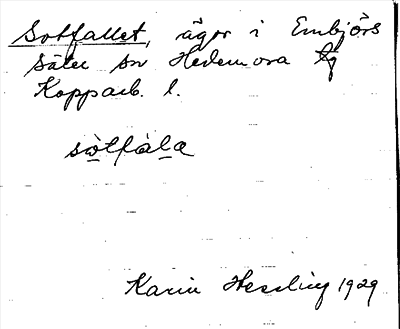 Sotfallet, ägor i Embjörs
säter sn Hedemora lg
Kopparb. l.
sòtfàla
Karin Hessling 1929